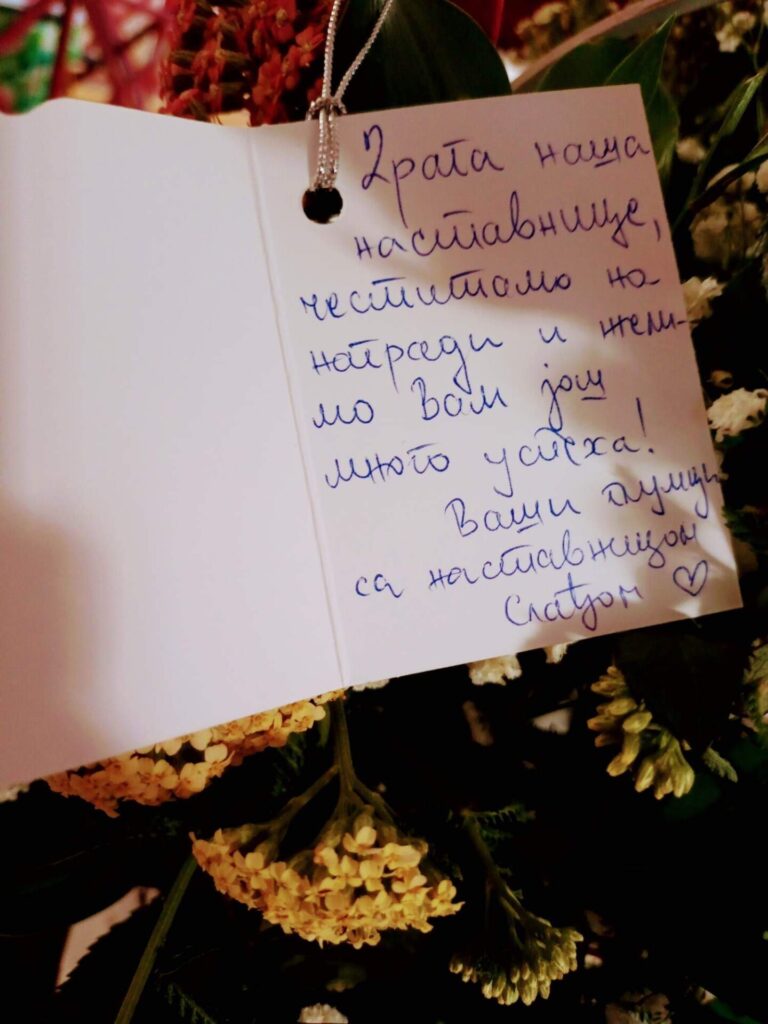 Драга наша
наставнице,
честитамо на
награди и жели-
мо Вам још
много успеха!
Ваши глумци
са наставницом
Слађом ♡